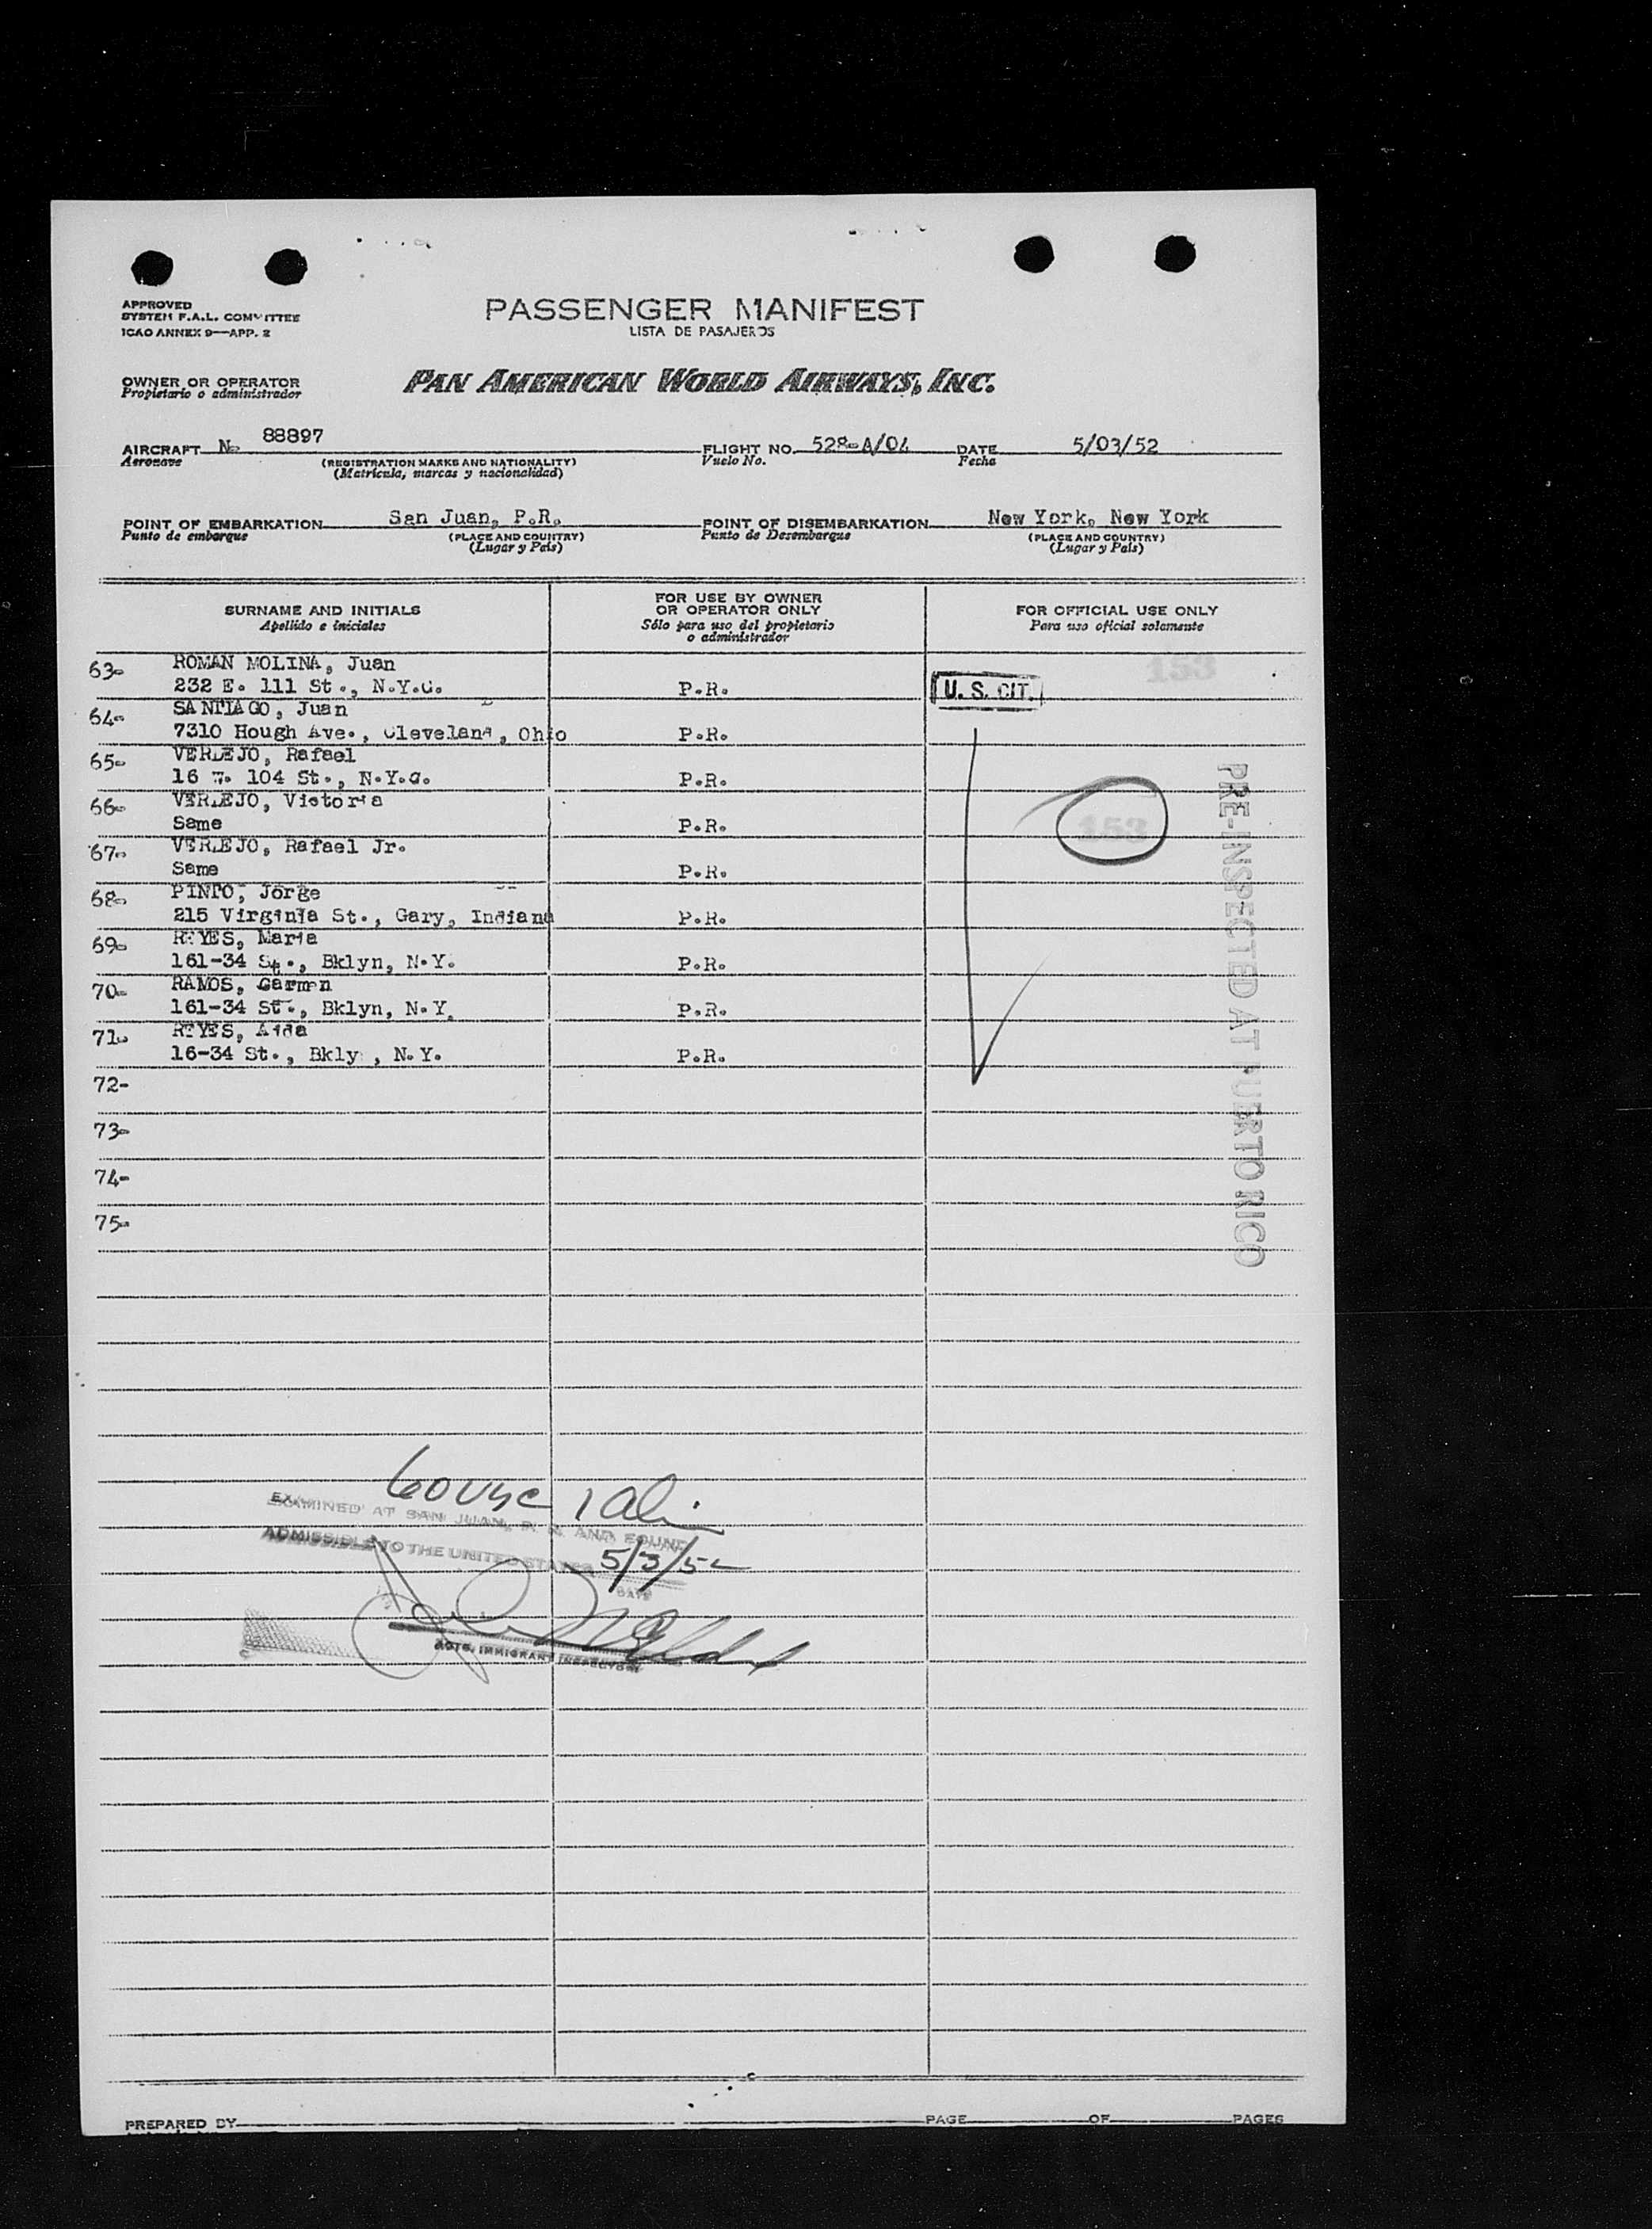 APPROVED
SYSTEM F.A.L. COMMITTEE
ICAO ANNEX 9—APP. 2
PASSENGER MANIFEST
LISTA DE PASAJEROS
OWNER OR OPERATOR
Propietario o administrador
PAN AMERICAN WORLD AIRWAYS, INC.
AIRCRAFT N- 88897 FLIGHT NO. 528-A/04 DATE 5/03/52
Aeronave (REGISTRATION MARKS AND NATIONALITY) Vuelo No. Fecha
(Matrícula, marcas y nacionalidad)
POINT OF EMBARKATION San Juan, P.R. POINT OF DISEMBARKATION New York, New York
Punto de embarque (PLACE AND COUNTRY) Punto de Desembarque (PLACE AND COUNTRY)
(Lugar y País) (Lugar y País)
SURNAME AND INITIALS
Apellido e iniciales
FOR USE BY OWNER
OR OPERATOR ONLY
Sólo para uso del propietario
o administrador
FOR OFFICIAL USE ONLY
Para uso oficial solamente
63- ROMAN MOLINA, Juan 153
232 E. 111 St., N.Y.C. P.R. U. S. CIT.
64- SANTIAGO, Juan
7310 Hough Ave., Cleveland, Ohio P.R.
65- VERDEJO, Rafael
16 W. 104 St., N.Y.C. P.R.
66- VERDEJO, Victoria
Same P.R. 153
67- VERDEJO, Rafael Jr.
Same P.R.
68- PINTO, Jorge
215 Virginia St., Gary, Indiana P.R.
69- REYES, Maria
161-34 St., Bklyn, N.Y. P.R.
70- RAMOS, Carmen
161-34 St., Bklyn, N.Y. P.R.
71- REYES, Aida
16-34 St., Bkly , N.Y. P.R.
72-
73-
74-
75-
PRE-INSPECTED AT PUERTO RICO
EXAMINED AT SAN JUAN, P. R. AND FOUND
ADMISSIBLE TO THE UNITED STATES 5/3/52
DATE
ACTG. IMMIGRANT INSPECTOR
PREPARED BY PAGE OF PAGES